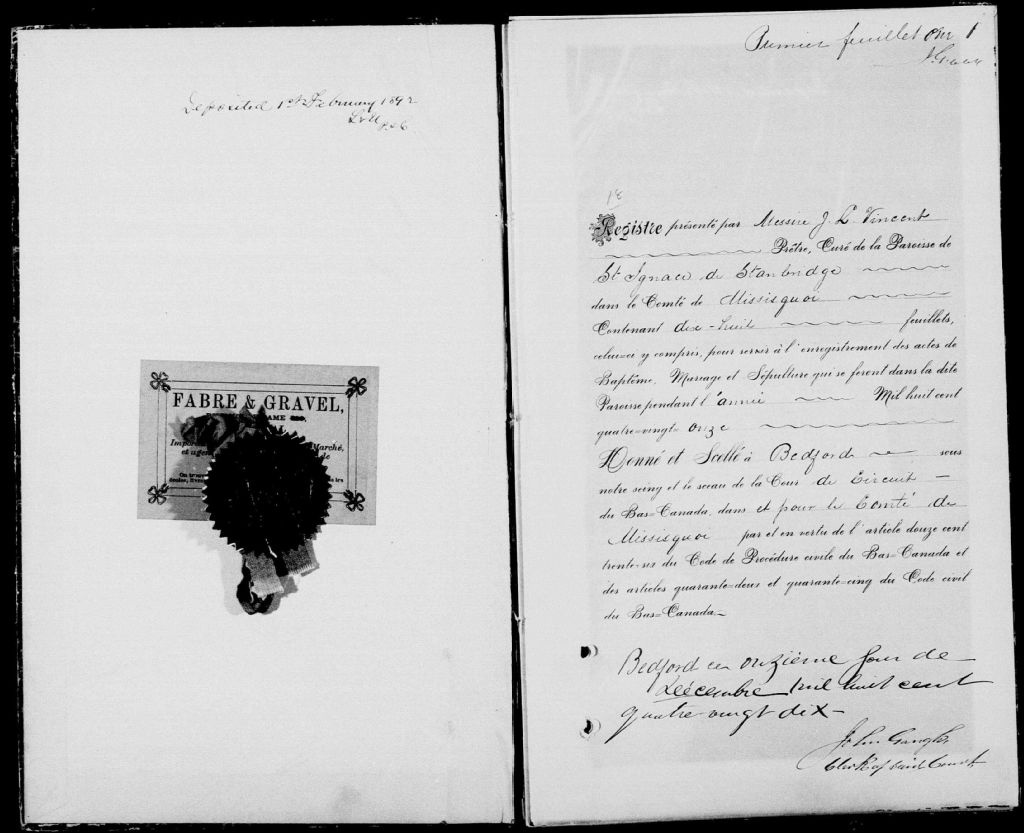 Deposited 1st February 1892
FABRE & GRAVEL,
AME
Marché,
et agen
On trouv
écoles, livres
Premier feuillet One 1
18
Registre présenté par Messire J. L. Vincent
Prêtre, Curé de la Paroisse de
St Ignace de Stanbridge
dans le Comté de Missisquoi
Contenant dix-huit feuillets,
celui-ci y compris, pour servir à l'enregistrement des actes de
Baptême, Mariage et Sépulture qui se feront dans la dite
Paroisse pendant l'année Mil huit cent
quatre-vingt-onze
Donné et Scellé à Bedford sous
notre seing et le sceau de la Cour de Circuit
du Bas=Canada, dans et pour le Comté de
Missisquoi par et en vertu de l'article douze cent
trente-six du Code de Procédure civile du Bas=Canada et
des articles quarante-deux et quarante-cinq du Code civil
du Bas=Canada.
Bedford ce onzième jour de
Décembre mil huit cent
quatre vingt dix
John
Clerk of said Court